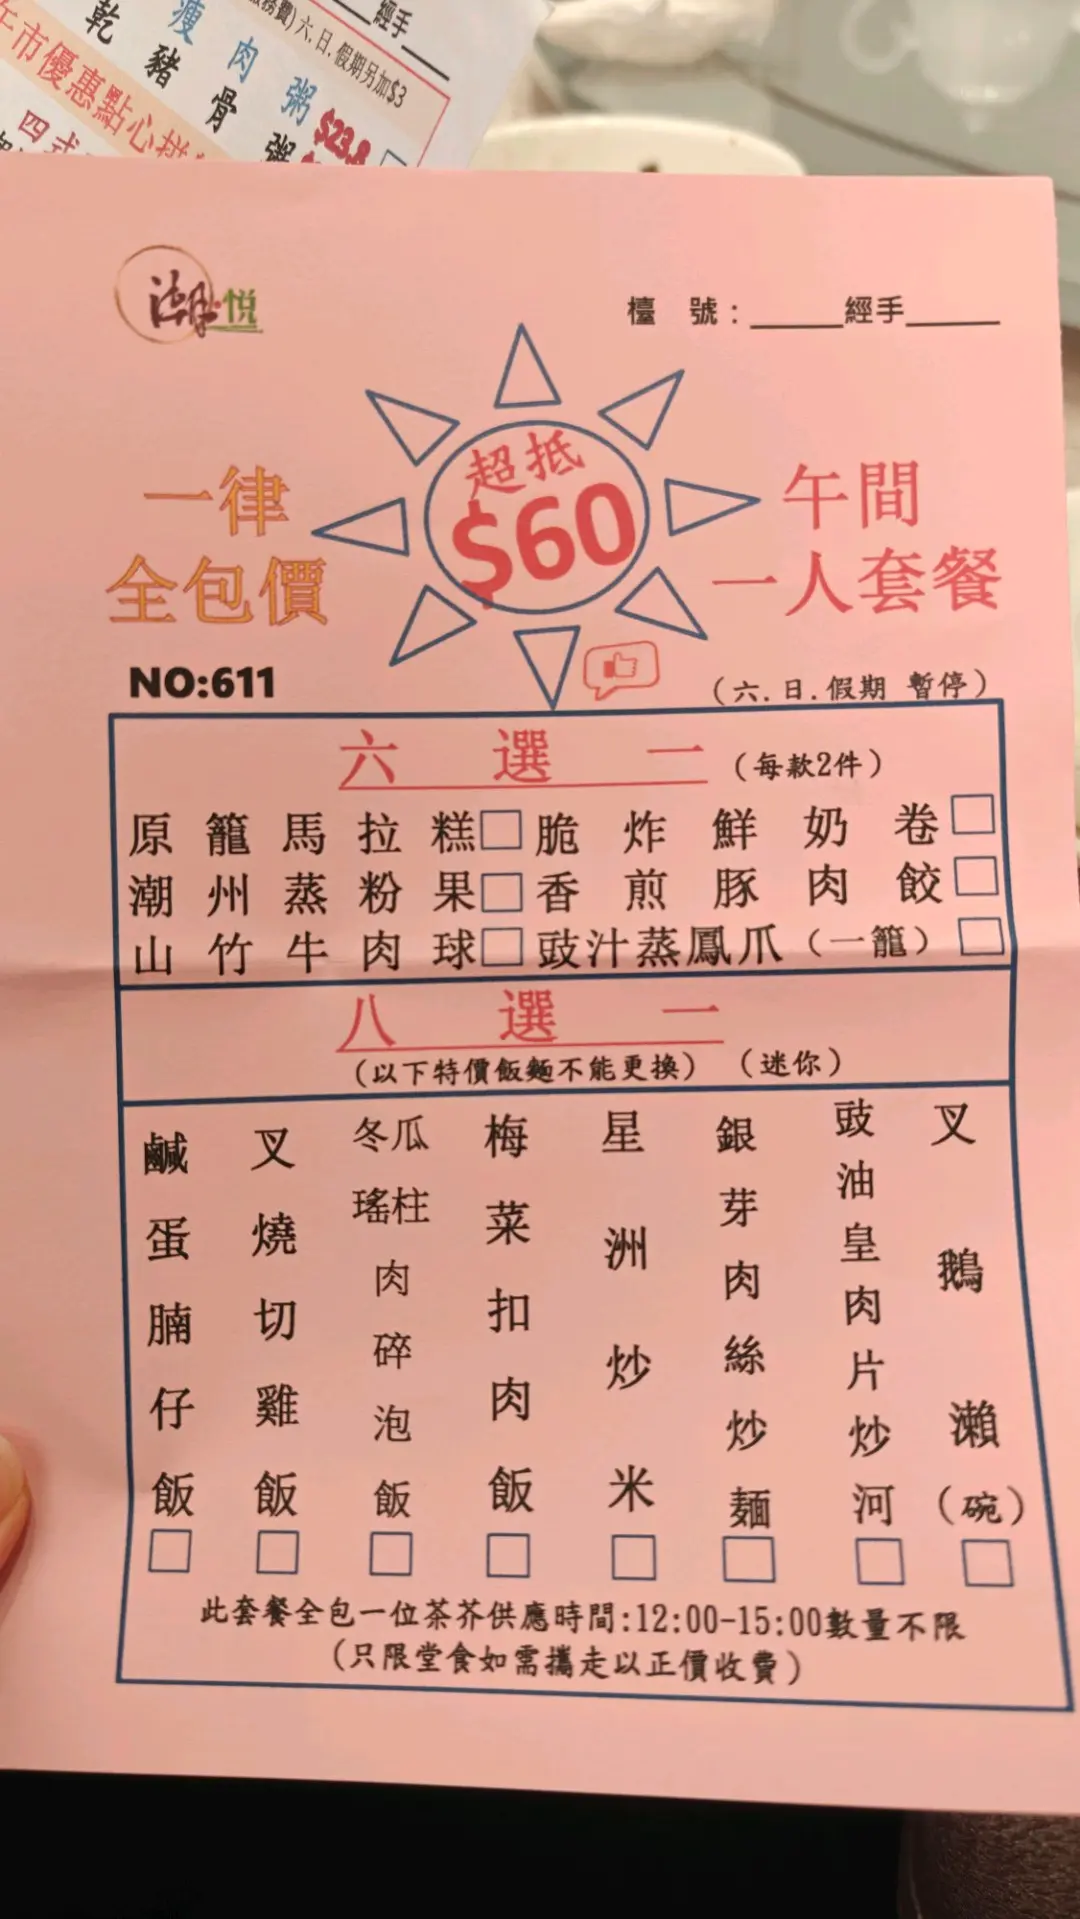 經手
服務費)六.日.假期另加$3
瘦肉粥 $23.8
乾豬骨粥
午市優惠點心
四式
潮悅
檯 號：______經手______
超抵
$60
一律
全包價
午間
一人套餐
NO:611
（六.日.假期 暫停）
六 選 一（每款2件）
原籠馬拉糕□ 脆炸鮮奶卷□
潮州蒸粉果□ 香煎豚肉餃□
山竹牛肉球□ 豉汁蒸鳳爪（一籠）□
八 選 一
（以下特價飯麵不能更換）（迷你）
鹹蛋腩仔飯□
叉燒切雞飯□
冬瓜瑤柱肉碎泡飯□
梅菜扣肉飯□
星洲炒米□
銀芽肉絲炒麵□
豉油皇肉片炒河□
叉鵝瀨（碗）□
此套餐全包一位茶芥供應時間:12:00-15:00數量不限
（只限堂食如需攜走以正價收費）